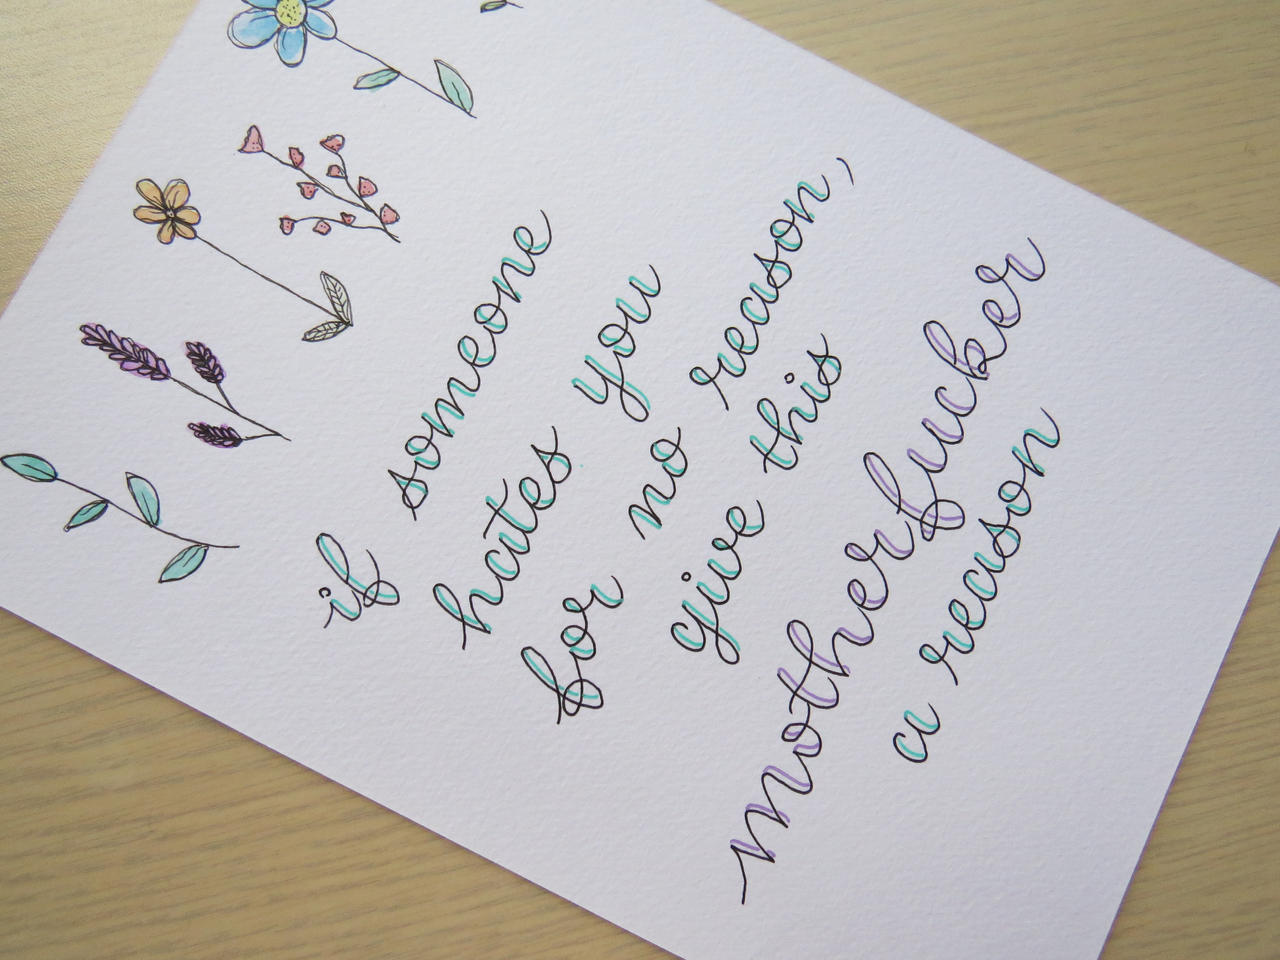 if someone
hates you
for no reason,
give this
motherfucker
a reason